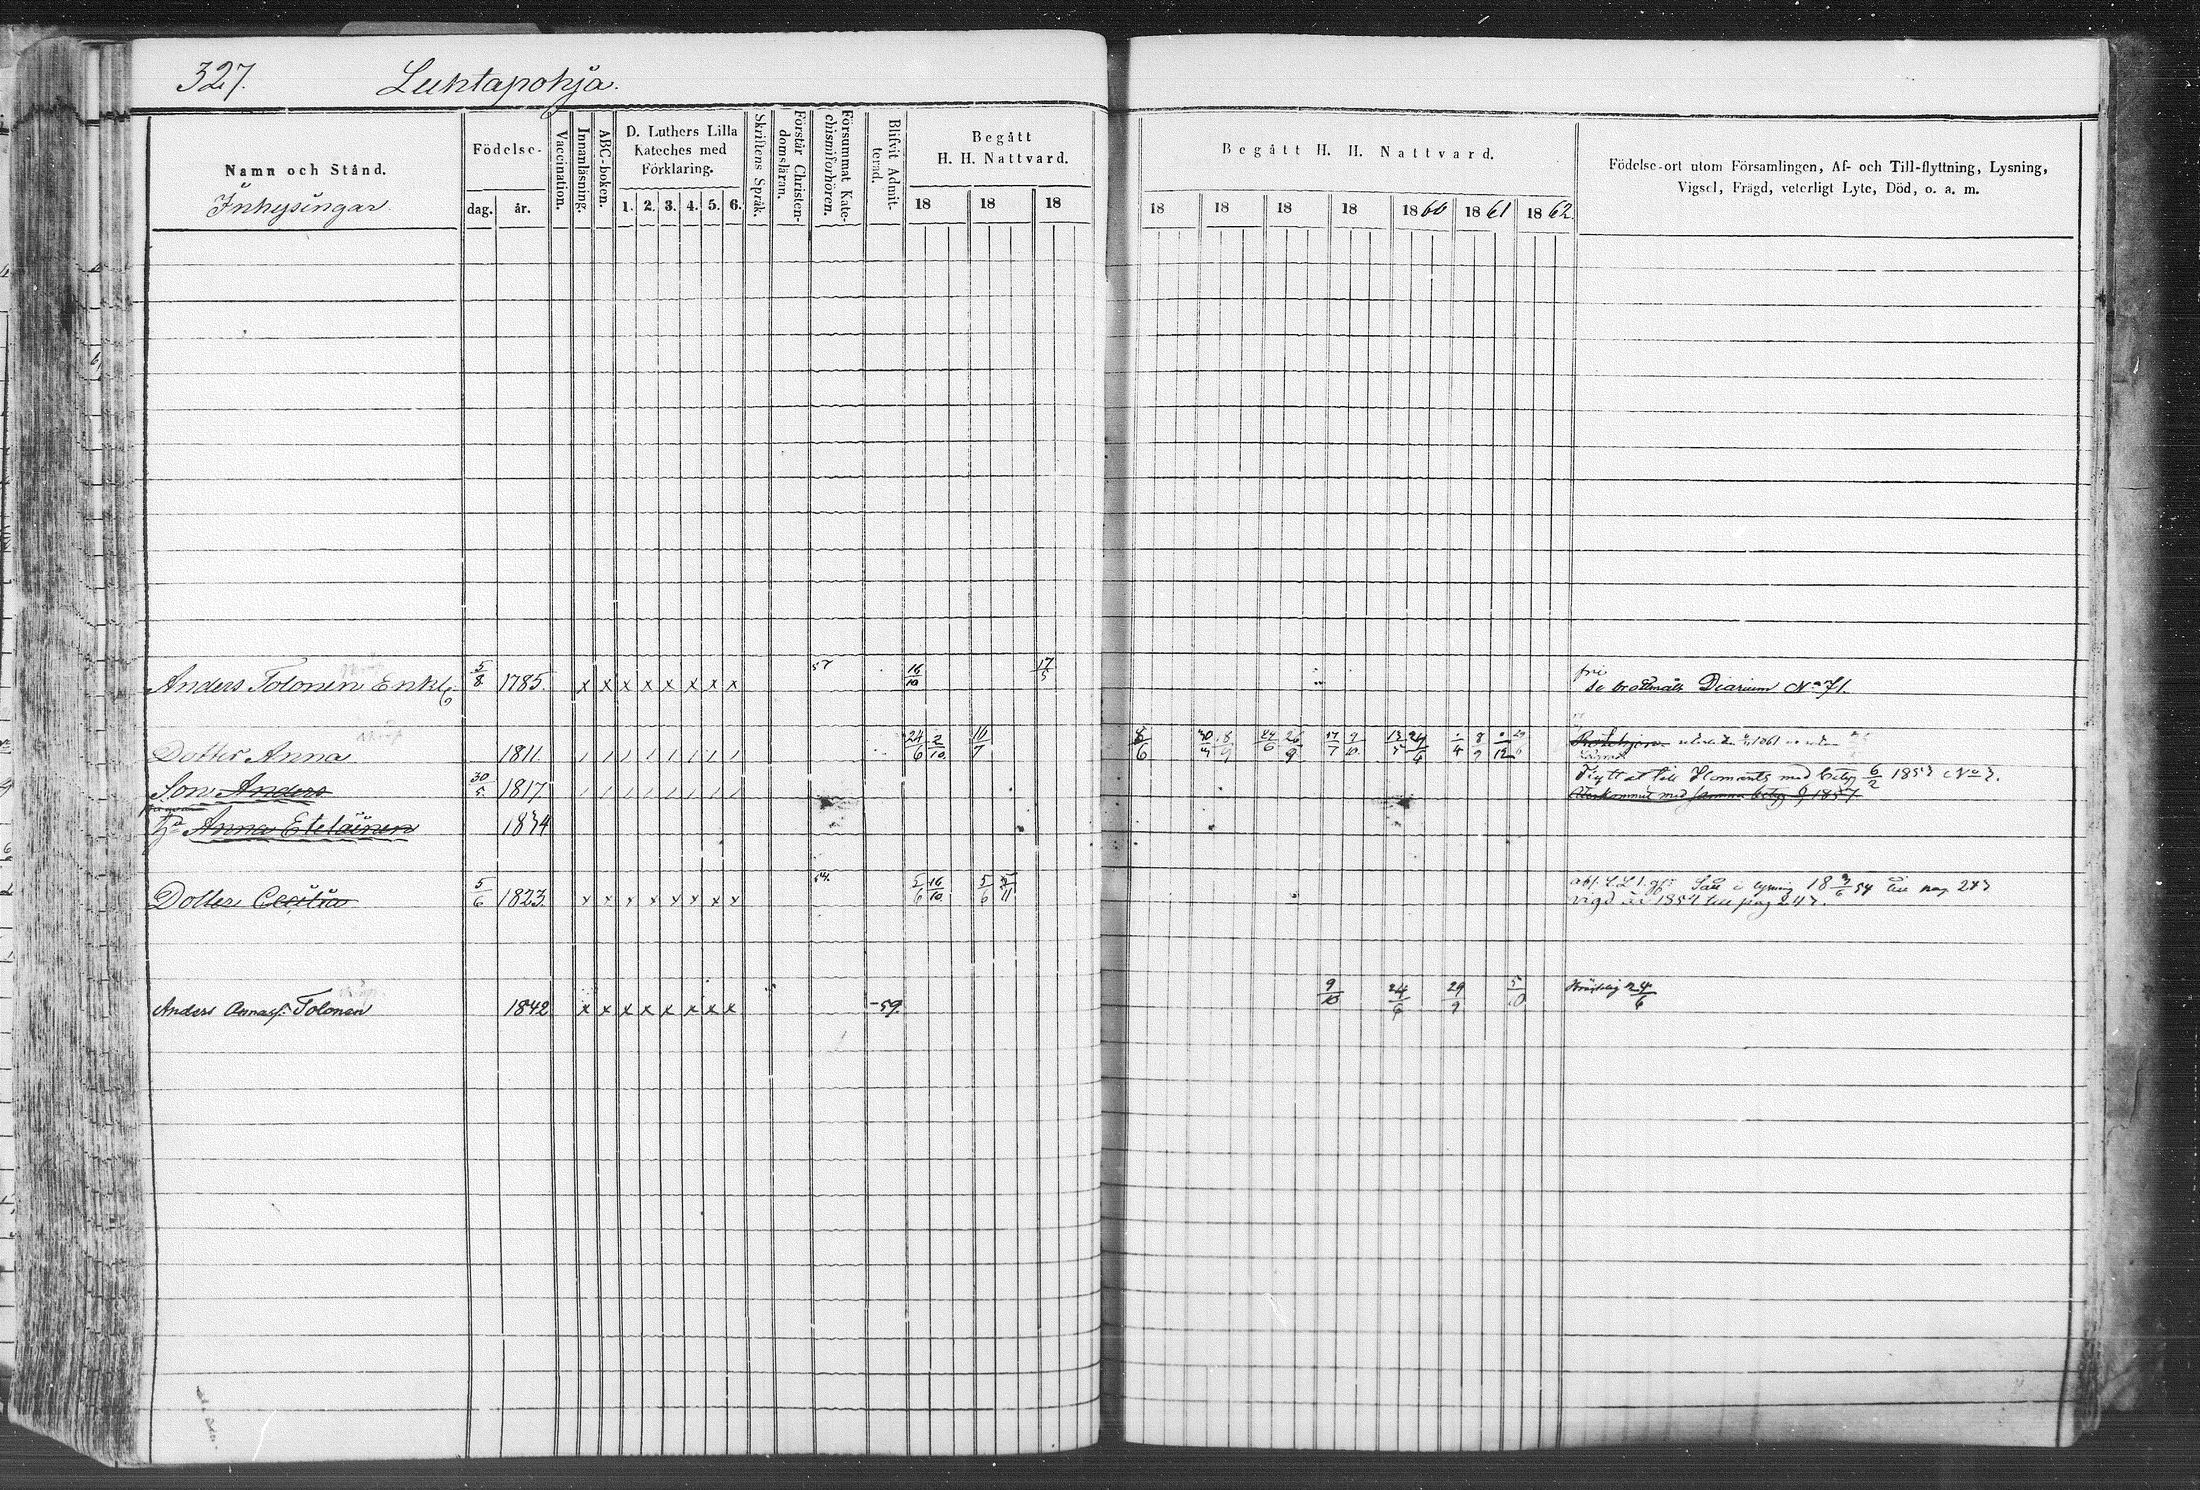 327. Luhtapohja.
Namn och Stånd.
Inhysingar.
Födelse-
dag. år.
Vaccination.
Innanläsning.
ABC-boken.
D. Luthers Lilla
Kateches med
Förklaring.
1. 2. 3. 4. 5. 6.
Skriftens Språk.
Förstår Christen-
domsläran.
Försummat Kate-
chismiförhören.
Blifvit Admit-
terad.
Begått
H. H. Nattvard.
18 18 18
Begått H. H. Nattvard.
18 18 18 18 1860 1861 1862.
Födelse-ort utom Församlingen, Af- och Till-flyttning, Lysning,
Vigsel, Frägd, veterligt Lyte, Död, o. a. m.
Anders Tolonen Enkl. 5/8 1785. x x x x x x x x 57 16/10 17/5 fri
se brottmåls Diarium No 71.
Dotter Anna 1811 24/6 2/10 16/7 8/6
Son Anders 30/5 1817 Flyttat till Ilomants med betyg 6/2 1857 No 7.
Återkommit med samma betyg 1857.
Anna Eteläinen 1834
Dotter Cecilia 5/6 1823. x x x x x x x x 54. 5/6 16/10 5/6 5/11
vigd år 1857 till pag 247.
Anders Annas. Tolonen 1842 x x x x x x x x -59. 9/10 24/6 29/9 5/10 24/6